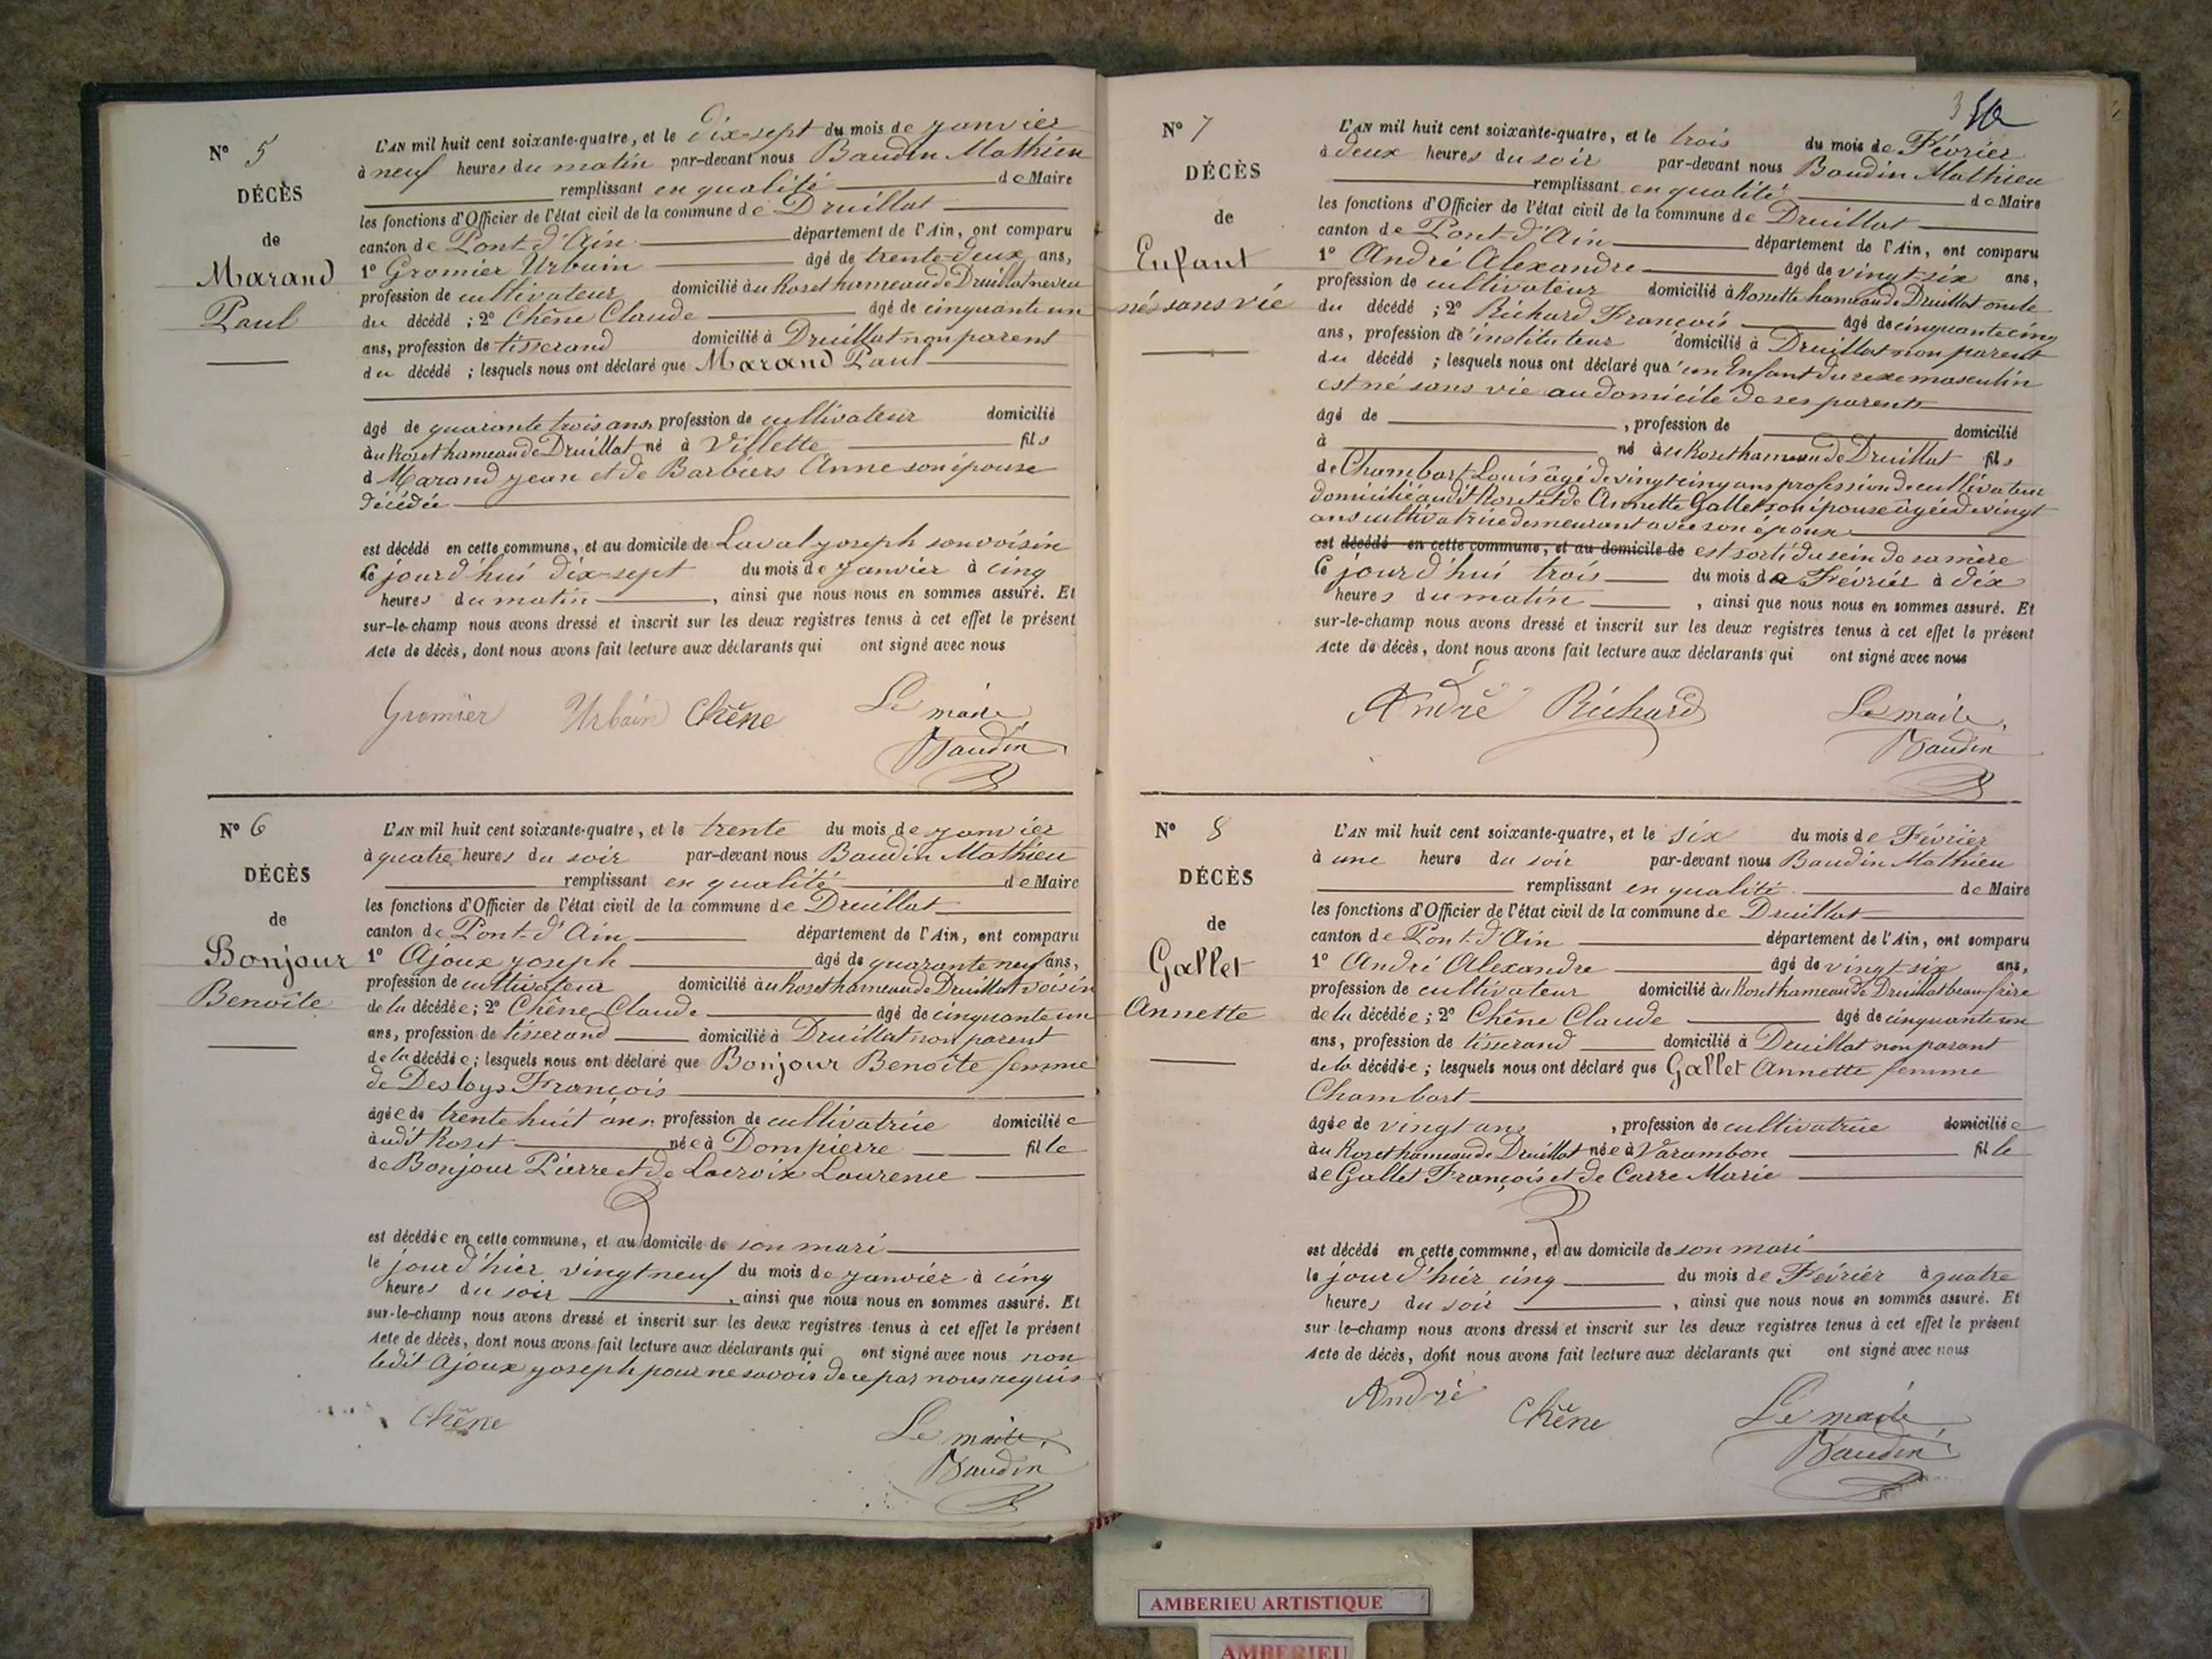 N° 5
DÉCÈS
de
Marand
Paul
L'AN mil huit cent soixante-quatre, et le dix-sept du mois de janvier
à neuf heures du matin par-devant nous Baudin Mathieu
remplissant en qualité de Maire
les fonctions d'Officier de l'état civil de la commune de Druillat
canton de Pont-d'Ain département de l'Ain, ont comparu
1° Gromier Urbain âgé de trente-deux ans,
profession de cultivateur domicilié au Roset hameau de Druillat neveu
du décédé ; 2° Chêne Claude âgé de cinquante un
ans, profession de tisserand domicilié à Druillat non parent
du décédé ; lesquels nous ont déclaré que Marand Paul
âgé de quarante trois ans, profession de cultivateur domicilié
au Roset hameau de Druillat né à Villette fils
d Marand jean et de Barbiers Anne son épouse
décédée
est décédé en cette commune, et au domicile de Laval joseph son voisin
Ce jourd'hui dix-sept du mois de janvier à cinq
heures du matin, ainsi que nous nous en sommes assuré. Et
sur-le-champ nous avons dressé et inscrit sur les deux registres tenus à cet effet le présent
Acte de décès, dont nous avons fait lecture aux déclarants qui ont signé avec nous
Gromier Urbain Chêne Le maire
Baudin
N° 6
DÉCÈS
de
Bonjour
Benoîte
L'AN mil huit cent soixante-quatre, et le trente du mois de janvier
à quatre heures du soir par-devant nous Baudin Mathieu
remplissant en qualité de Maire
les fonctions d'Officier de l'état civil de la commune de Druillat
canton de Pont-d'Ain département de l'Ain, ont comparu
1° Ajoux joseph âgé de quarante neuf ans,
profession de cultivateur domicilié au Roset hameau de Druillat voisin
de la décédée ; 2° Chêne Claude âgé de cinquante un
ans, profession de tisserand domicilié à Druillat non parent
de la décédée ; lesquels nous ont déclaré que Bonjour Benoîte femme
de Desloys François
âgée de trente huit ans, profession de cultivatrice domiciliée
audit Roset née à Dompierre fille
de Bonjour Pierre et de Lacroix Laurence
est décédée en cette commune, et au domicile de son mari
le jour d'hier vingt neuf du mois de janvier à cinq
heures du soir, ainsi que nous nous en sommes assuré. Et
sur-le-champ nous avons dressé et inscrit sur les deux registres tenus à cet effet le présent
Acte de décès, dont nous avons fait lecture aux déclarants qui ont signé avec nous non
ledit Ajoux joseph pour ne savoir de ce par nous requis
Chêne Le maire,
Baudin
3
N° 7
DÉCÈS
de
Enfant
né sans vie
L'AN mil huit cent soixante-quatre, et le trois du mois de Février
à deux heures du soir par-devant nous Baudin Mathieu
remplissant en qualité de Maire
les fonctions d'Officier de l'état civil de la commune de Druillat
canton de Pont-d'Ain département de l'Ain, ont comparu
1° André Alexandre âgé de vingt six ans,
profession de cultivateur domicilié à Rossette hameau de Druillat oncle
du décédé ; 2° Richard François âgé de cinquante cinq
ans, profession de instituteur domicilié à Druillat non parent
du décédé ; lesquels nous ont déclaré que un Enfant du sexe masculin
est né sans vie au domicile de ses parents
âgé de , profession de domicilié
à né au Roset hameau de Druillat fils
de Chambart Louis âgé de vingt cinq ans profession de cultivateur
domicilié audit Roset et de Annette Gallet son épouse âgée de vingt
ans cultivatrice demeurant avec son époux
est décédé en cette commune, et au domicile de est sorti du sein de sa mère
Ce jourd'hui trois du mois de Février à dix
heures du matin, ainsi que nous nous en sommes assuré. Et
sur-le-champ nous avons dressé et inscrit sur les deux registres tenus à cet effet le présent
Acte de décès, dont nous avons fait lecture aux déclarants qui ont signé avec nous
André Richard Le maire,
Baudin
N° 8
DÉCÈS
de
Gallet
Annette
L'AN mil huit cent soixante-quatre, et le six du mois de Février
à une heure du soir par-devant nous Baudin Mathieu
remplissant en qualité de Maire
les fonctions d'Officier de l'état civil de la commune de Druillat
canton de Pont-d'Ain département de l'Ain, ont comparu
1° André Alexandre âgé de vingt six ans,
profession de cultivateur domicilié au Roset hameau de Druillat beau-frère
de la décédée ; 2° Chêne Claude âgé de cinquante un
ans, profession de tisserand domicilié à Druillat non parent
de la décédée ; lesquels nous ont déclaré que Gallet Annette femme
Chambart
âgée de vingt ans, profession de cultivatrice domiciliée
au Roset hameau de Druillat née à Varambon fille
de Gallet François et de Carre Marie
est décédé en cette commune, et au domicile de son mari
le jour d'hier cinq du mois de Février à quatre
heures du soir, ainsi que nous nous en sommes assuré. Et
sur-le-champ nous avons dressé et inscrit sur les deux registres tenus à cet effet le présent
Acte de décès, dont nous avons fait lecture aux déclarants qui ont signé avec nous
André Chêne Le maire
Baudin
AMBERIEU ARTISTIQUE
AMBERIEU